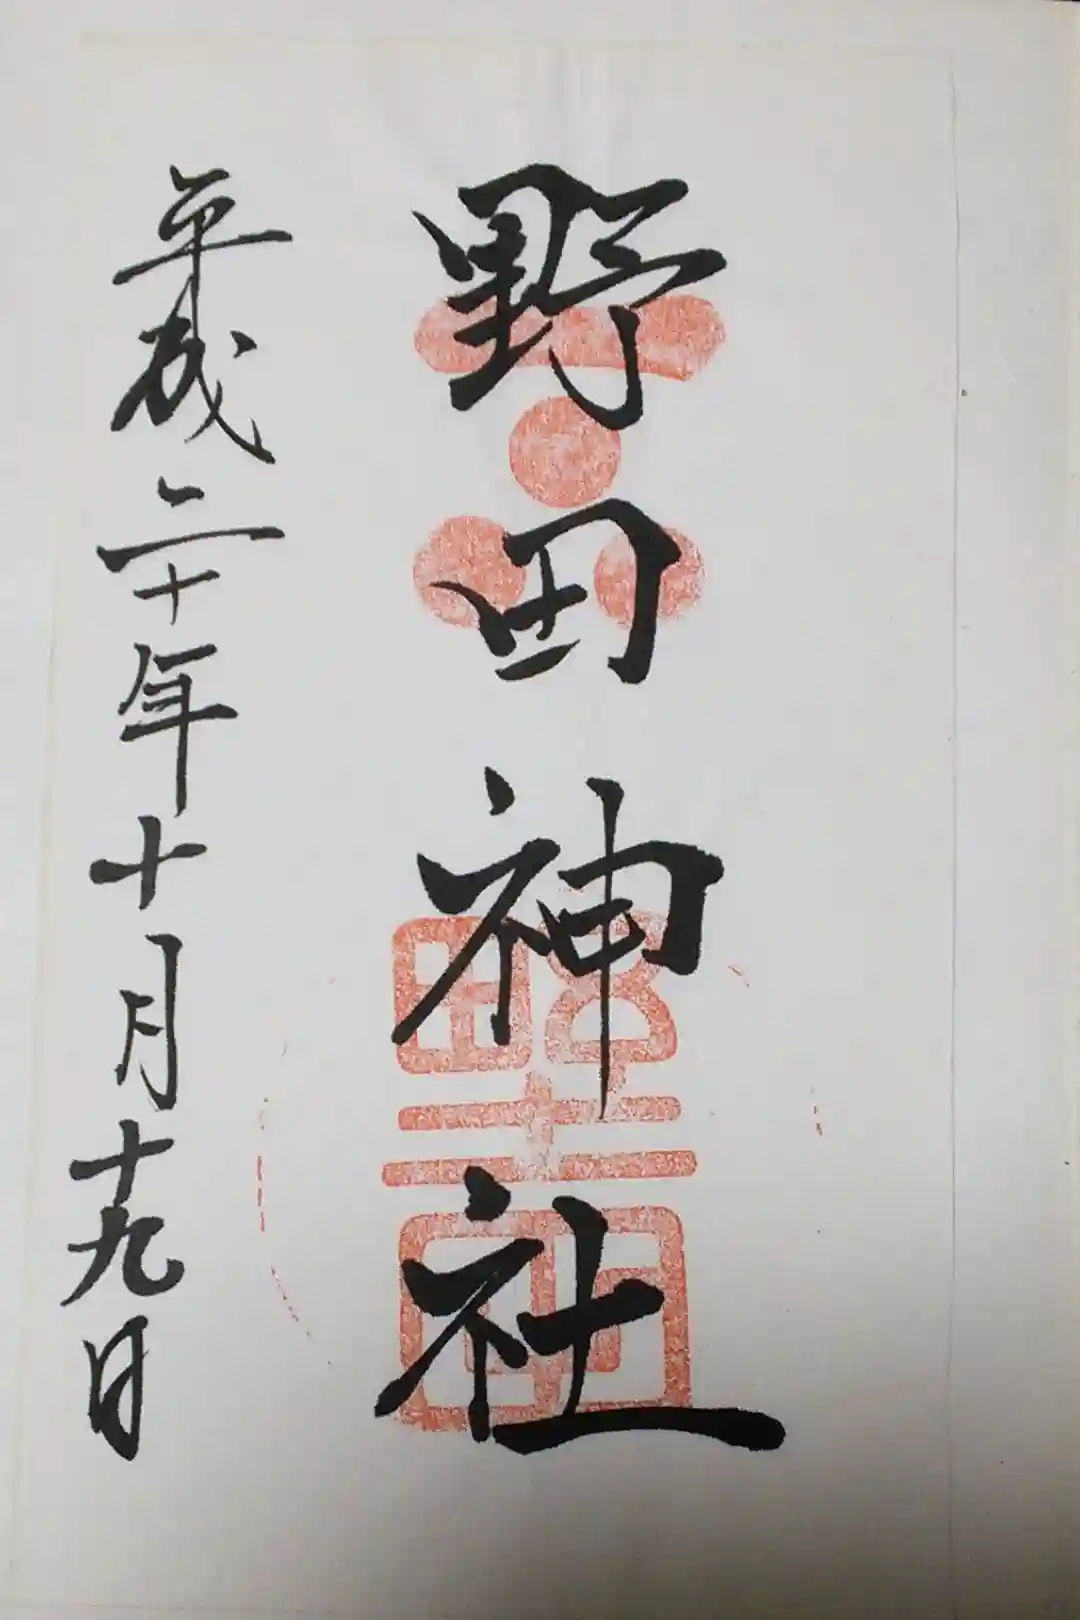 野田神社
平成二十年十月十九日
野田